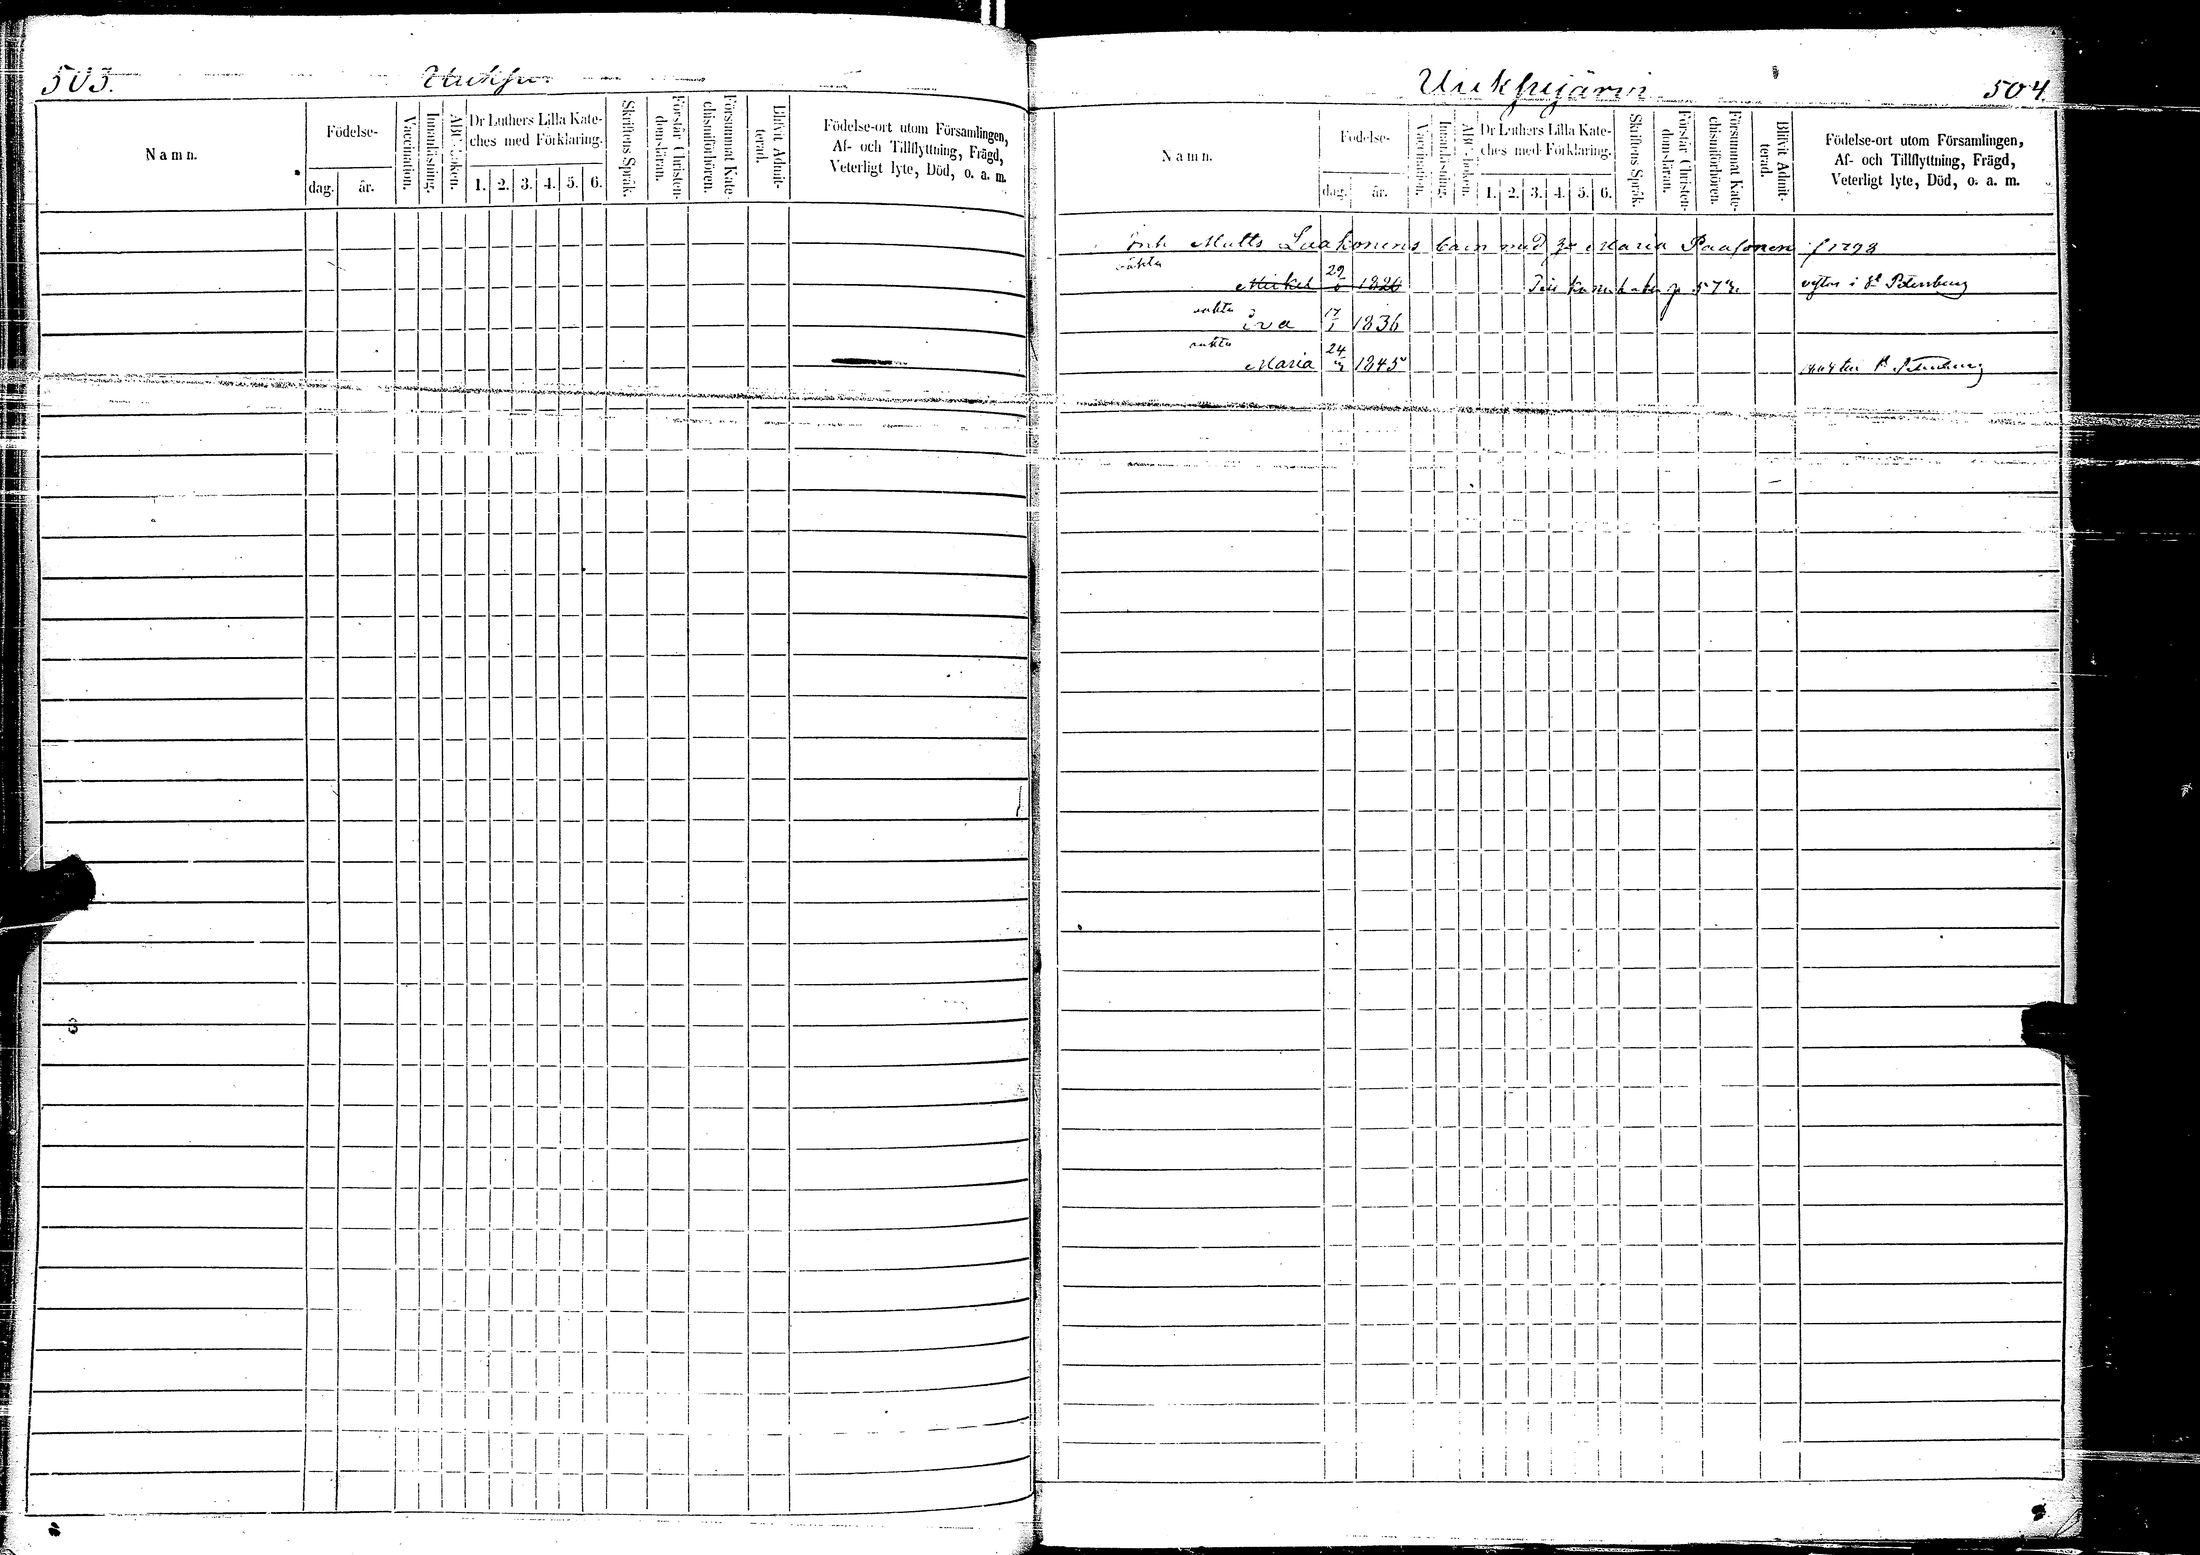 503.
Uuksu
Namn.
Födelse-
dag.
år.
Vaccination.
Innanläsning.
ABC-boken.
Dr Luthers Lilla Kate-
ches med Förklaring.
1. 2. 3. 4. 5. 6.
Skriftens Språk.
Förstår Christen-
domsläran.
Försummat Kate-
chismiförhören.
Blifvit Admit-
terad.
Födelse-ort utom Församlingen,
Af- och Tillflyttning, Frägd,
Veterligt lyte, Död, o. a. m.
Uuksujärvi
504.
Namn.
Födelse-
dag.
år.
Vaccination.
Innanläsning.
ABC-boken.
Dr Luthers Lilla Kate-
ches med Förklaring.
1. 2. 3. 4. 5. 6.
Skriftens Språk.
Förstår Christen-
domsläran.
Försummat Kate-
chismiförhören.
Blifvit Admit-
terad.
Födelse-ort utom Församlingen,
Af- och Tillflyttning, Frägd,
Veterligt lyte, Död, o. a. m.
Enk Matts Laakonens barn med Maria Paasonen f 1798
oäkta
Mickel 29 1820 i St Petersburg
oäkta
Eva 17/1 1836
oäkta
Maria 24 1845